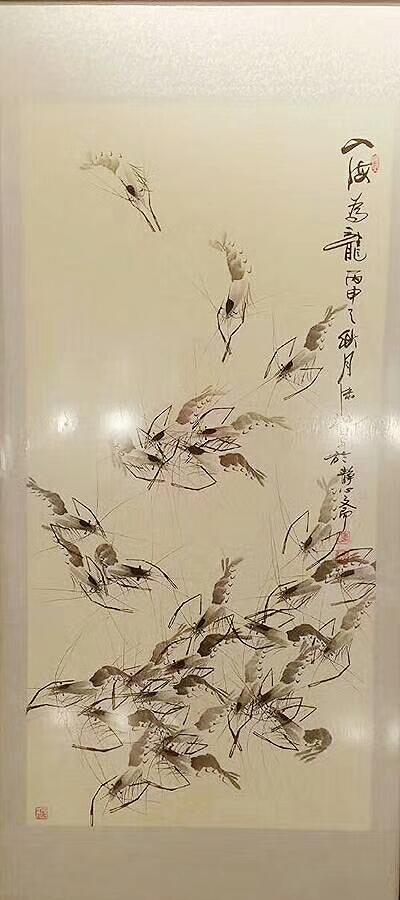 入海為龍丙申之秋月於静心斋